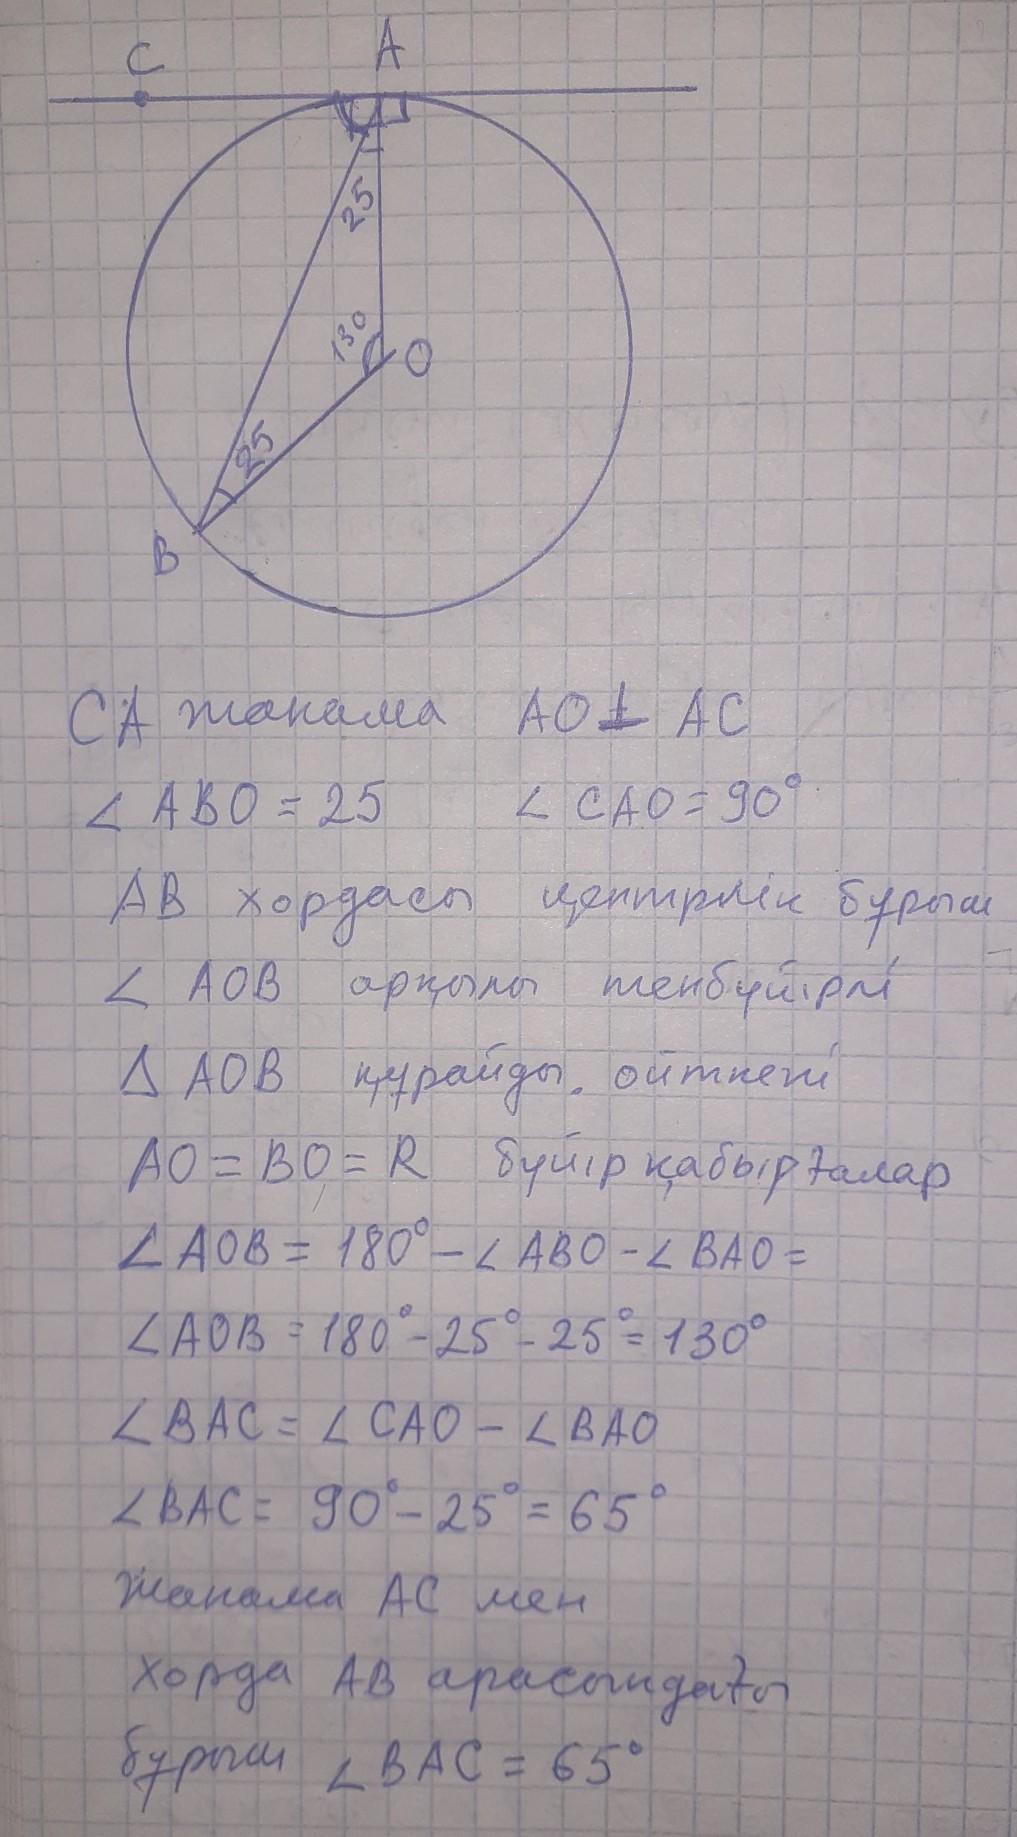 C
A
25
130
O
25
B
CA жанама AO⊥ AC
∠ ABO = 25 ∠ CAO = 90°
AB хордасы центрлік бұрыш
∠ AOB арқылы тенбүйірлі
Δ AOB құрайды. ойткені
AO = BO = R бүйір қабырғалар
∠AOB = 180° - ∠ ABO - ∠ BAO =
∠AOB = 180° - 25° - 25° = 130°
∠BAC = ∠ CAO - ∠ BAO
∠BAC = 90° - 25° = 65°
Жанама AC мен
хорда AB арасындағы
бұрыш ∠BAC = 65°